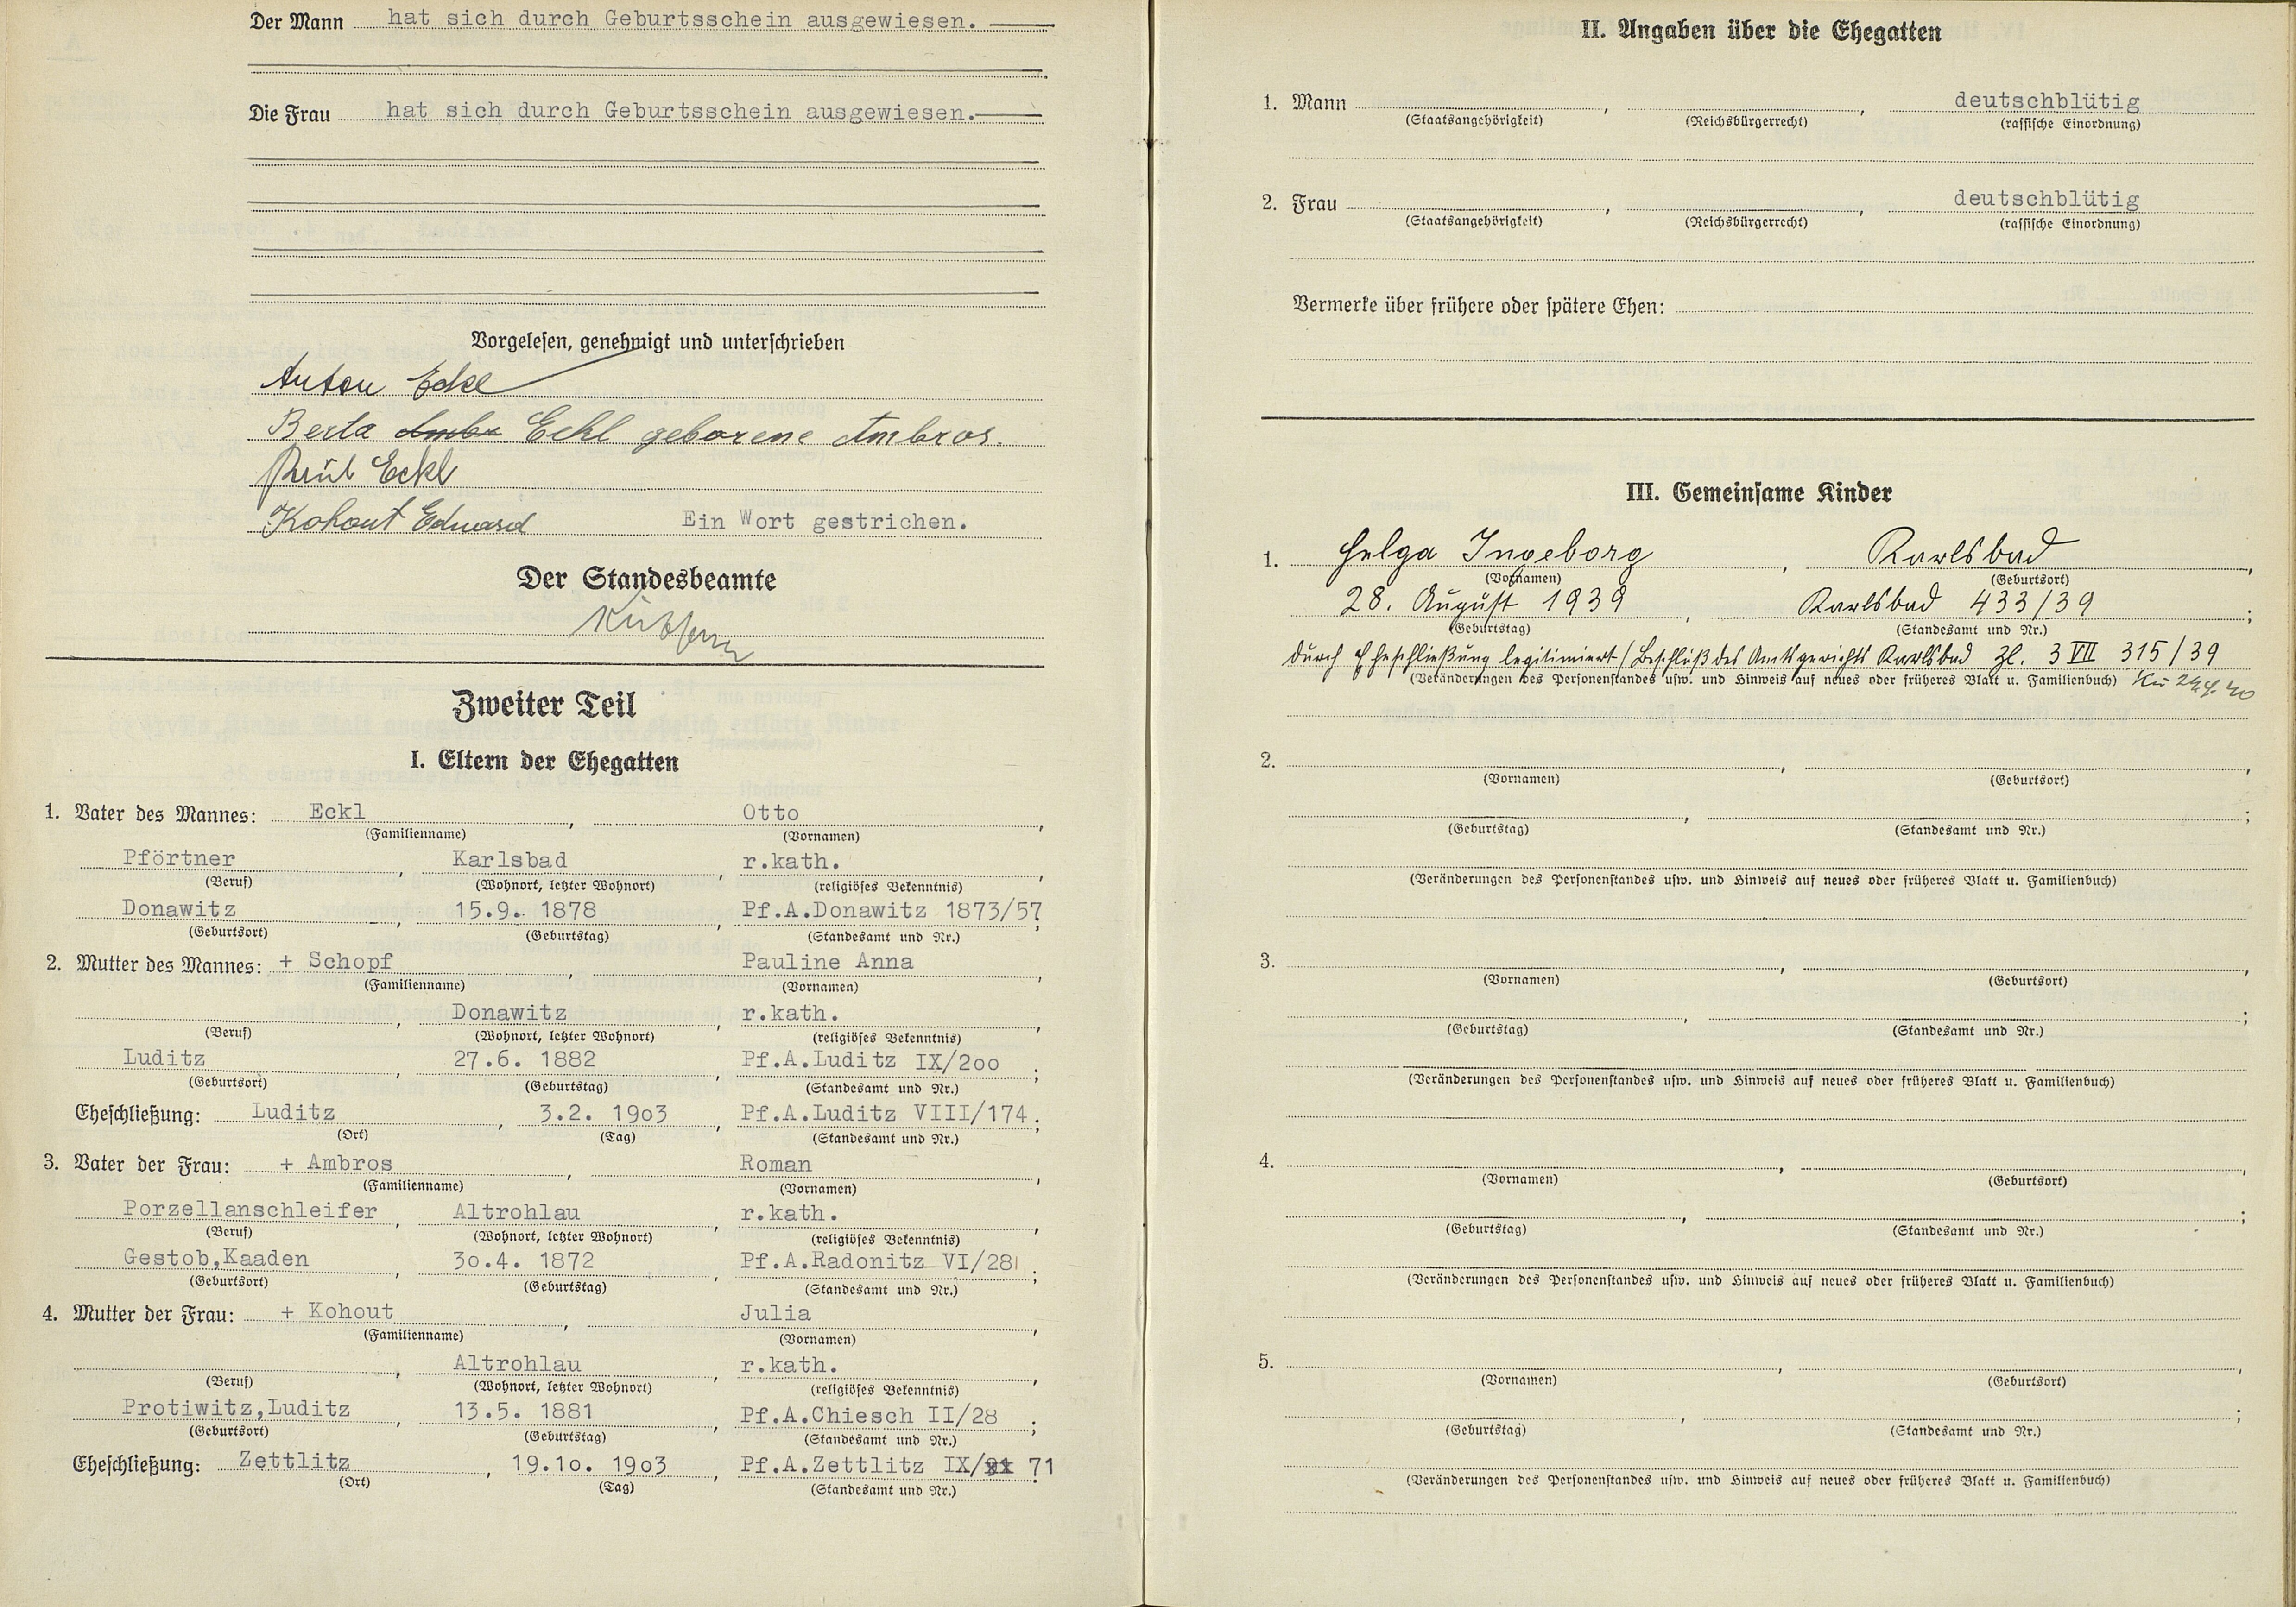 Der Mann hat sich durch Geburtsschein ausgewiesen.
Die Frau hat sich durch Geburtsschein ausgewiesen.
Vorgelesen, genehmigt und unterschrieben
Anton Eckl
Berta Ambr Eckl geborene Ambros.
Eckl
Kohout Eduard Ein Wort gestrichen.
Der Standesbeamte
Zweiter Teil
I. Eltern der Ehegatten
1. Vater des Mannes: Eckl, Otto,
(Familienname) (Vornamen)
Pförtner, Karlsbad, r.kath.,
(Beruf) (Wohnort, letzter Wohnort) (religiöses Bekenntnis)
Donawitz, 15.9. 1878, Pf.A.Donawitz 1873/57;
(Geburtsort) (Geburtstag) (Standesamt und Nr.)
2. Mutter des Mannes: + Schopf, Pauline Anna,
(Familienname) (Vornamen)
, Donawitz, r.kath.,
(Beruf) (Wohnort, letzter Wohnort) (religiöses Bekenntnis)
Luditz, 27.6. 1882, Pf.A.Luditz IX/2oo;
(Geburtsort) (Geburtstag) (Standesamt und Nr.)
Eheschließung: Luditz, 3.2. 19o3, Pf.A.Luditz VIII/174;
(Ort) (Tag) (Standesamt und Nr.)
3. Vater der Frau: + Ambros, Roman,
(Familienname) (Vornamen)
Porzellanschleifer, Altrohlau, r.kath.,
(Beruf) (Wohnort, letzter Wohnort) (religiöses Bekenntnis)
Gestob,Kaaden, 3o.4. 1872, Pf.A.Radonitz VI/281;
(Geburtsort) (Geburtstag) (Standesamt und Nr.)
4. Mutter der Frau: + Kohout, Julia,
(Familienname) (Vornamen)
, Altrohlau, r.kath.,
(Beruf) (Wohnort, letzter Wohnort) (religiöses Bekenntnis)
Protiwitz,Luditz, 13.5. 1881, Pf.A.Chiesch II/28;
(Geburtsort) (Geburtstag) (Standesamt und Nr.)
Eheschließung: Zettlitz, 19.1o. 19o3, Pf.A.Zettlitz IX/xx 71;
(Ort) (Tag) (Standesamt und Nr.)
II. Angaben über die Ehegatten
1. Mann , , deutschblütig
(Staatsangehörigkeit) (Reichsbürgerrecht) (rassische Einordnung)
2. Frau , , deutschblütig
(Staatsangehörigkeit) (Reichsbürgerrecht) (rassische Einordnung)
Vermerke über frühere oder spätere Ehen:
III. Gemeinsame Kinder
1. Helga Ingeborg, Karlsbad,
(Vornamen) (Geburtsort)
28. August 1939, Karlsbad 433/39;
(Geburtstag) (Standesamt und Nr.)
durch Eheschließung legitimiert / Beschluß des Amtsgerichts Karlsbad Zl. 3 VII 315/39
(Veränderungen des Personenstandes usw. und Hinweis auf neues oder früheres Blatt u. Familienbuch)
2. , ,
(Vornamen) (Geburtsort)
, ;
(Geburtstag) (Standesamt und Nr.)
(Veränderungen des Personenstandes usw. und Hinweis auf neues oder früheres Blatt u. Familienbuch)
3. , ,
(Vornamen) (Geburtsort)
, ;
(Geburtstag) (Standesamt und Nr.)
(Veränderungen des Personenstandes usw. und Hinweis auf neues oder früheres Blatt u. Familienbuch)
4. , ,
(Vornamen) (Geburtsort)
, ;
(Geburtstag) (Standesamt und Nr.)
(Veränderungen des Personenstandes usw. und Hinweis auf neues oder früheres Blatt u. Familienbuch)
5. , ,
(Vornamen) (Geburtsort)
, ;
(Geburtstag) (Standesamt und Nr.)
(Veränderungen des Personenstandes usw. und Hinweis auf neues oder früheres Blatt u. Familienbuch)